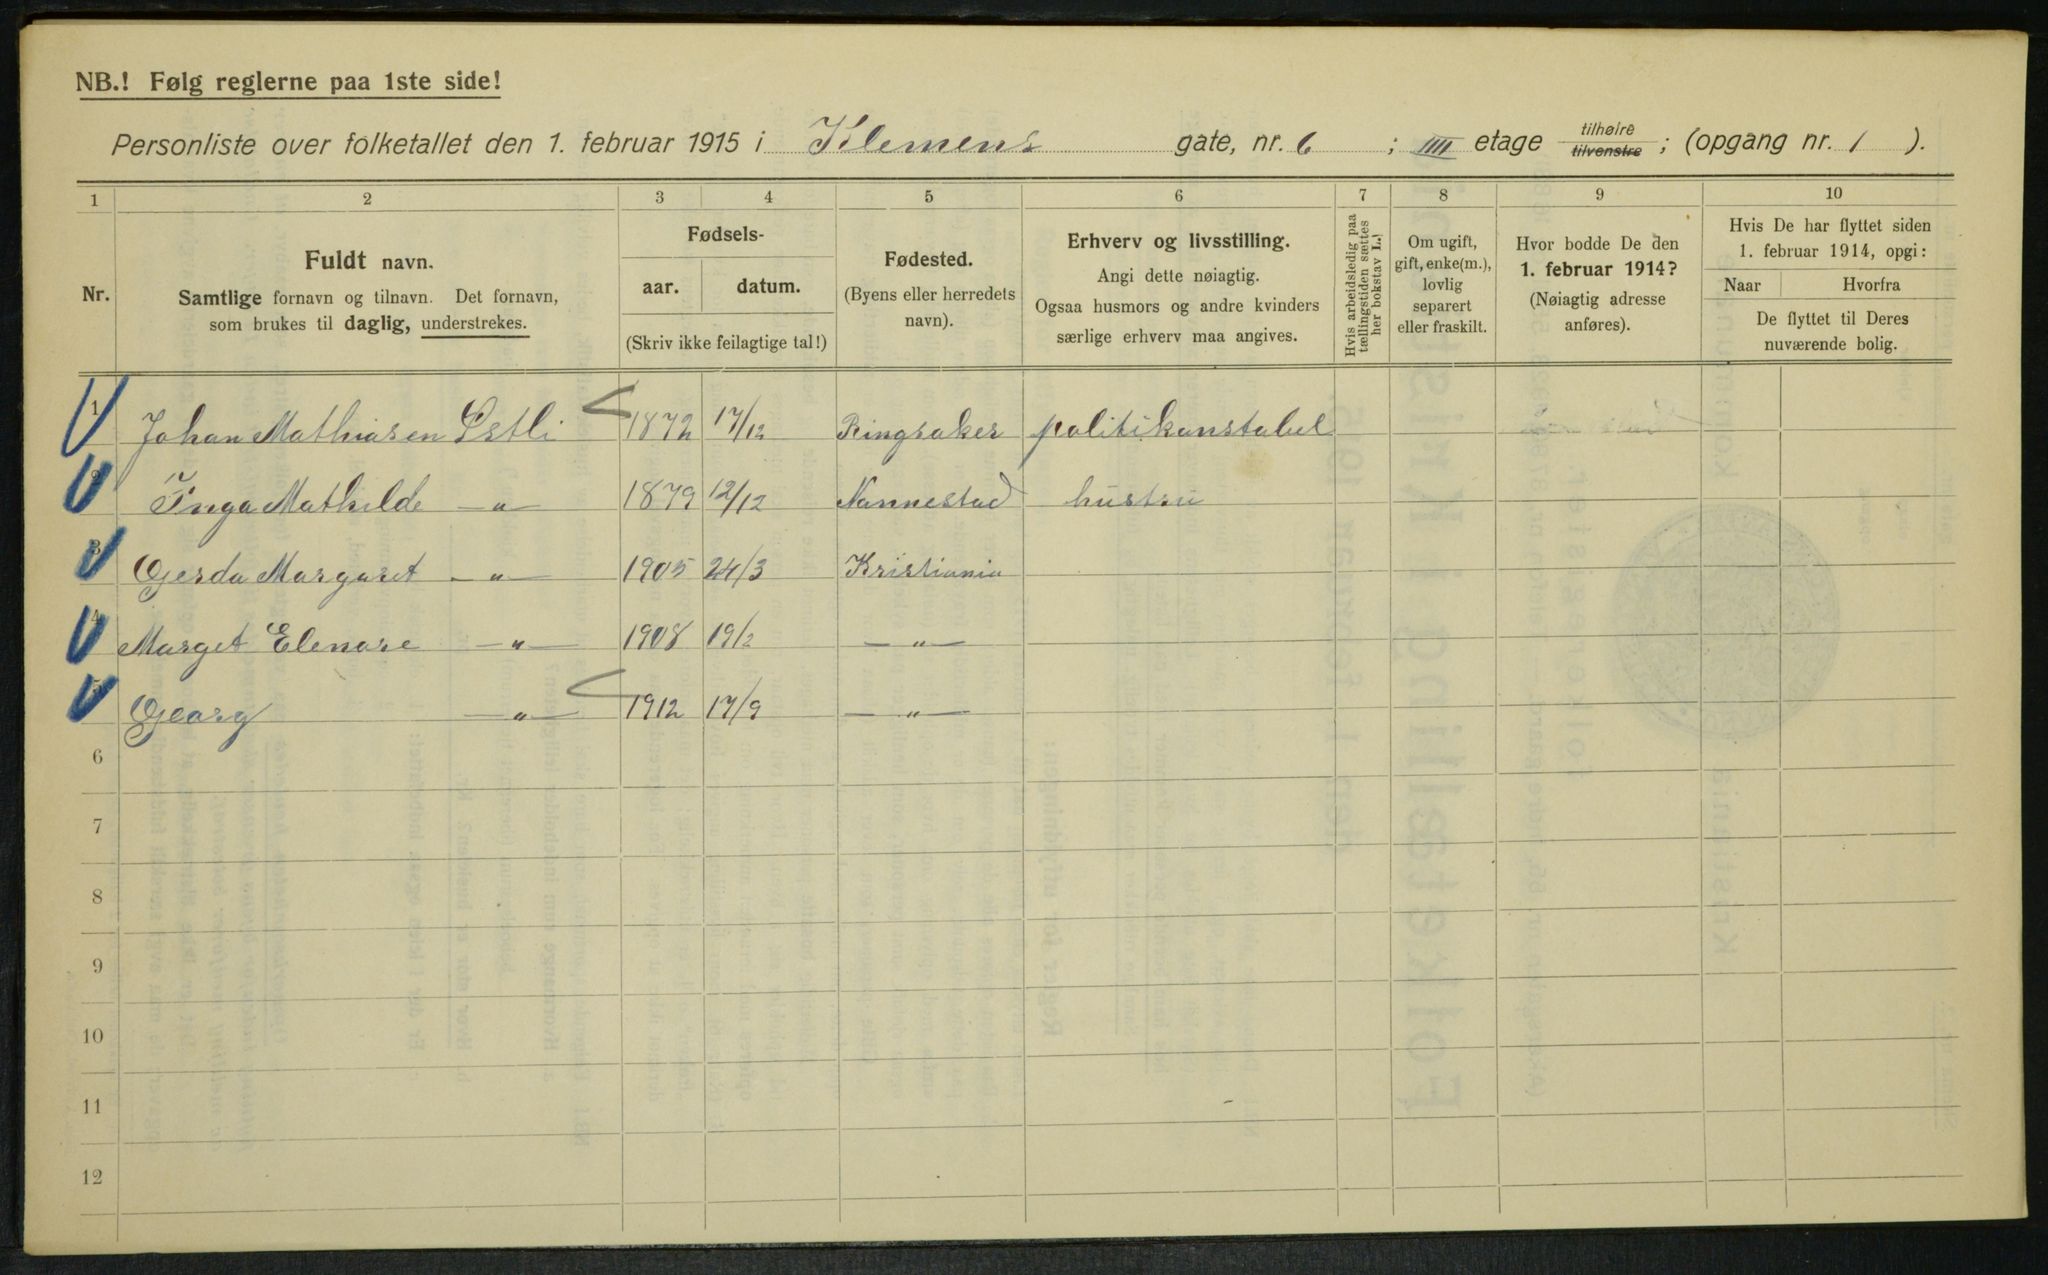 NB.! Følg reglerne paa 1ste side!
Personliste over folketallet den 1. februar 1915 i Klemens gate, nr. 6 ; IIII etage tilhøire tilvenstre ; (opgang nr. 1 ).
1 2 3 4 5 6 7 8 9 10
Nr.
Fuldt navn.
Samtlige fornavn og tilnavn. Det fornavn,
som brukes til daglig, understrekes.
Fødsels-
aar. datum.
(Skriv ikke feilagtige tal!)
Fødested.
(Byens eller herredets
navn).
Erhverv og livsstilling.
Angi dette nøiagtig.
Ogsaa husmors og andre kvinders
særlige erhverv maa angives.
Hvis arbeidsledig paa
tællingstiden sættes
her bokstav L.!
Om ugift,
gift, enke(m.),
lovlig
separert
eller fraskilt.
Hvor bodde De den
1. februar 1914?
(Nøiagtig adresse
anføres).
Hvis De har flyttet siden
1. februar 1914, opgi:
Naar Hvorfra
De flyttet til Deres
nuværende bolig.
1 Johan Mathiasen Østli 1872 17/12 Ringsaker politikonstabel
2 Inga Mathilde —„— 1879 12/12 Nannestad hustru
3 Gerda Margaret —„— 1905 24/3 Kristiania
4 Marget Elenore —„— 1908 19/2 —„—
5 Georg —„— 1912 17/9 —„—
6
7
8
9
10
11
12